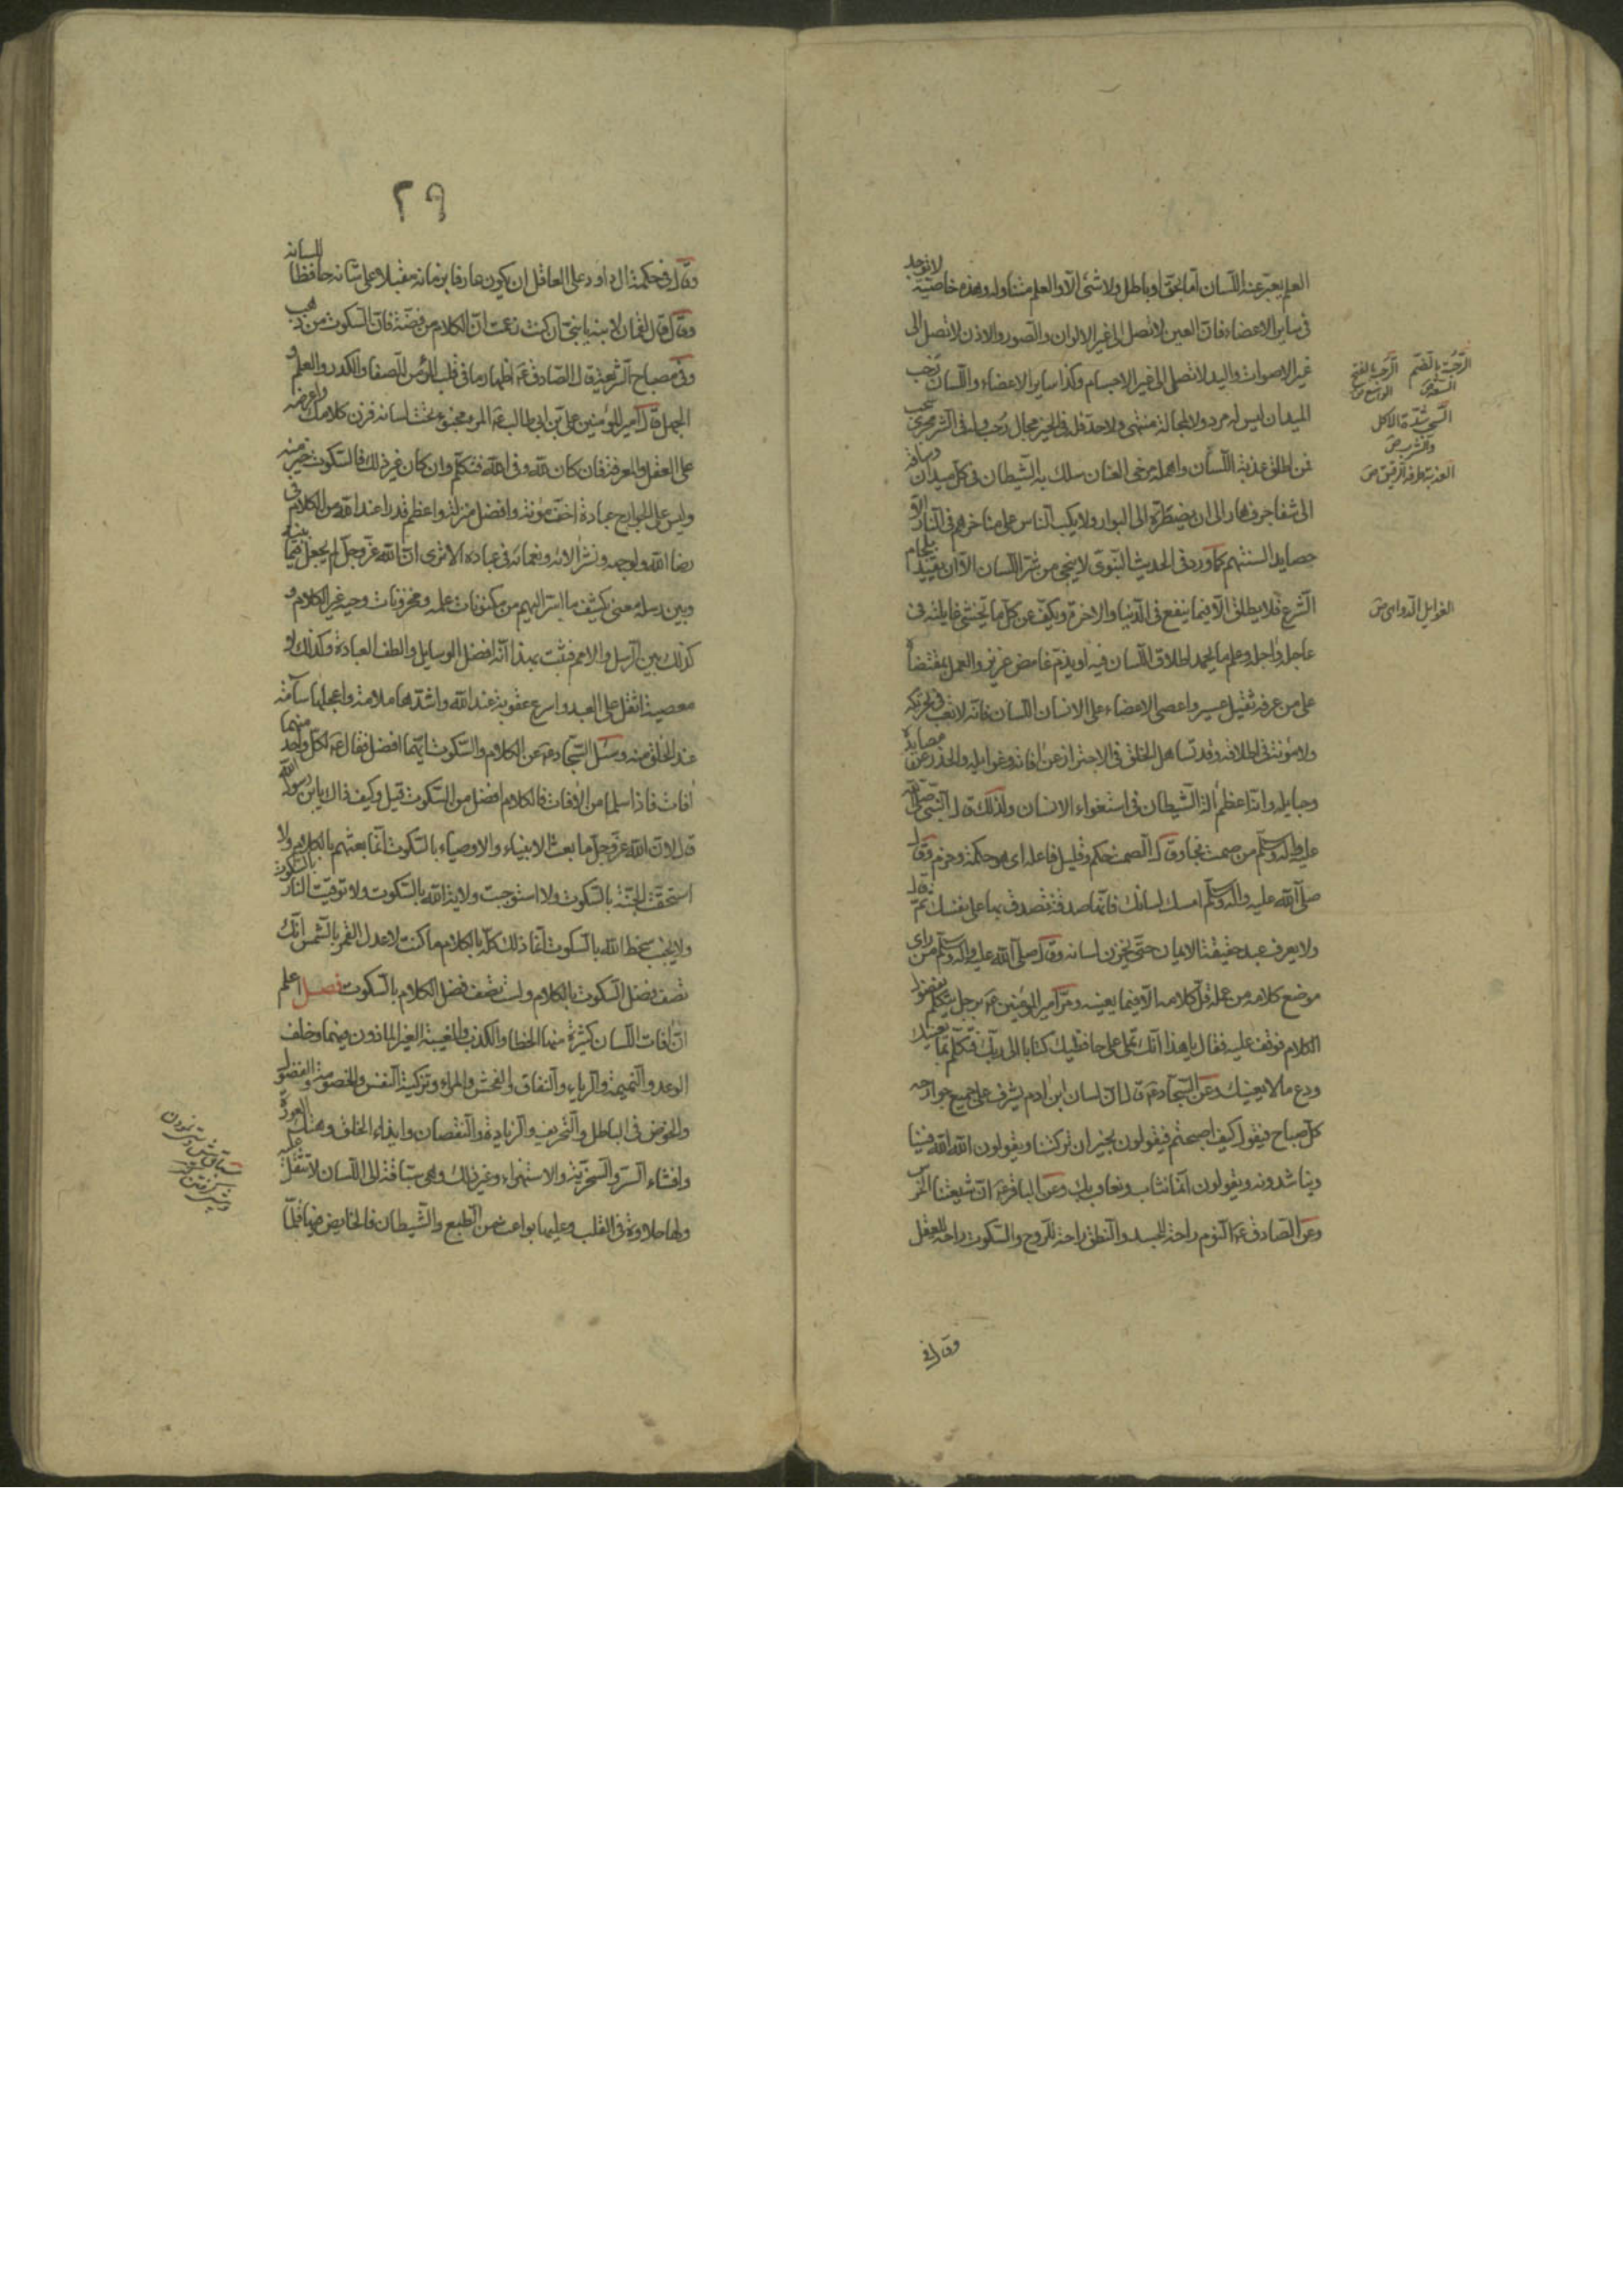 العلم يعبر عنه اللسان اما بحق او باطل ولا شئ الا والعلم متناوله وهذه خاصية لا توجد
في ساير الاعضاء فان العين لا تصل الى غير الالوان والصور والاذن لا تصل الى
غير الاصوات واليد لا تصل الى غير الاجسام وكذا ساير الاعضاء واللسان رحب
الميدان ليس له مرد ولا لمجاله منتهى ولا حد فله في الخير مجال رحب وله في الشر مجرى سحب
فمن اطلق عذبة اللسان واهمله مرخى العنان سلك به الشيطان في كل ميدان وساقه
الى شفا جرف هار الى ان يضطره الى البوار ولا يكب الناس على مناخرهم في النار الا
حصايد السنتهم كما ورد في الحديث النبوى لا ينجى من شر اللسان الا ان يقيد بلجام
الشرع فلا يطلق الا فيما ينفع في الدنيا والاخرة ويكف عن كل ما يخشى غايلته في
عاجله واجله وعلم ما يحمد اطلاق اللسان فيه او يذم غامض عزيز والعمل بمقتضاه
على من عرفه ثقيل عسير واعصى الاعضاء على الانسان اللسان فانه لا تعب في تحريكه
ولا مؤنة في اطلاقه وقد تساهل الخلق في الاحتراز عن افاته وغوايله والحذر عن مصايده
وحبايله وانه اعظم الة الشيطان في استغواء الانسان ولذلك قال النبى صلى الله
عليه واله وسلم من صمت نجا وقال الصمت حكم وقليل فاعله اى هو حكمة وحزم وقال
صلى الله عليه واله وسلم امسك لسانك فانها صدقة تصدق بها على نفسك ثم قال
ولا يعرف عبد حقيقة الايمان حتى يخزن لسانه وقال صلى الله عليه واله وسلم من راى
موضع كلامه من عمله قل كلامه الا فيما يعنيه ومر امير المؤمنين ع برجل يتكلم بفضول
الكلام فوقف عليه فقال يا هذا انك تملى على حافظيك كتابا الى ربك فتكلم بما يعنيك
ودع ما لا يعنيك وعن السجاد ع قال ان لسان ابن ادم يشرف على جميع جوارحه
كل صباح فيقول كيف اصبحتم فيقولون بخير ان تركتنا ويقولون الله الله فينا
ويناشدونه ويقولون انما نثاب ونعاقب بك وعن الباقر ع ان شيعتنا الخرس
وعن الصادق ع النوم راحة للجسد والنطق راحة للروح والسكوت راحة للعقل
وقال في
الرحبة بالضم السعة ص
الرحب بالفتح الواسع ص
السحب شدة الاكل والشرب ص
العذبة طرفه الرقيق ص
الغوايل الدواهى ص
٢٩
وقال في حكمة ال داود على العاقل ان يكون عارفا بزمانه مقبلا على شانه حافظا للسانه
وقال قال لقمان لابنه يا بنى ان كنت زعمت ان الكلام من فضة فان السكوت من ذهب
وفي مصباح الشريعة قال الصادق ع اظهار ما في قلب المؤمن الصفا والكدر والعلم و
الجهل قال امير المؤمنين على بن ابى طالب ع المرء مخبوء تحت لسانه فزن كلامك واعرضه
على العقل والمعرفة فان كان لله وفي الله فتكلم وان كان غير ذلك فالسكوت خير منه
وليس على الجوارح عبادة اخف مؤنة وافضل منزلة واعظم قدرا عند الله من الكلام في
رضا الله ولوجهه ونشر الائه ونعمائه في عباده الا ترى ان الله عز وجل لم يجعل فيما بينه
وبين رسله معنى يكشف ما اسر اليهم من مكنونات علمه ومخزونات وحيه غير الكلام و
كذلك بين الرسل والامم فثبت بهذا انه افضل الوسايل والطف العبادة وكذلك لا
معصية اثقل على العبد واسرع عقوبة عند الله واشدها ملامة واعجلها سآمة
عند الخلق منه وسئل السجاد ع عن الكلام والسكوت ايهما افضل فقال ع لكل واحد منهما
افات فاذا سلما من الافات فالكلام افضل من السكوت قيل وكيف ذاك يا بن رسول الله
قال لان الله عز وجل ما بعث الانبياء والاوصياء بالسكوت انما يعثهم بالكلام ولا
استحقت الجنة بالسكوت ولا استوجبت ولاية الله بالسكوت ولا توقيت النار بالسكوت
ولا يجنب سخط الله بالسكوت انما ذلك كله بالكلام ما كنت لاعدل القمر بالشمس انك
تصف فضل السكوت بالكلام ولست تصف فضل الكلام بالسكوت فصل اعلم
ان افات اللسان كثيرة منها الخطا والكذب والغيبة الغير الماذون فيهما وخلف
الوعد والنميمة والرياء والنفاق والفحش والمراء وتزكية النفس والخصومة والفضول
والخوض في الباطل والتحريف والزيادة والنقصان وايذاء الخلق وهتك العورة
وافشاء السر والسخرية والاستهزاء وغير ذلك وهى سباقة الى اللسان لا تثقل عليه
ولها حلاوة في القلب وعليها بواعث من الطبع والشيطان فالخايض فيها قلما